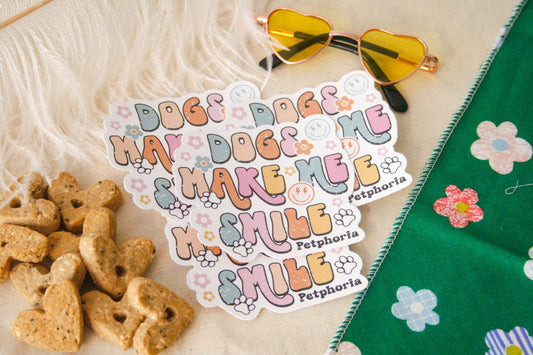 DOGS
DOGS
ME
Petphoria
DOGS
MAKE ME
SMILE
Petphoria
SMILE
Petphoria